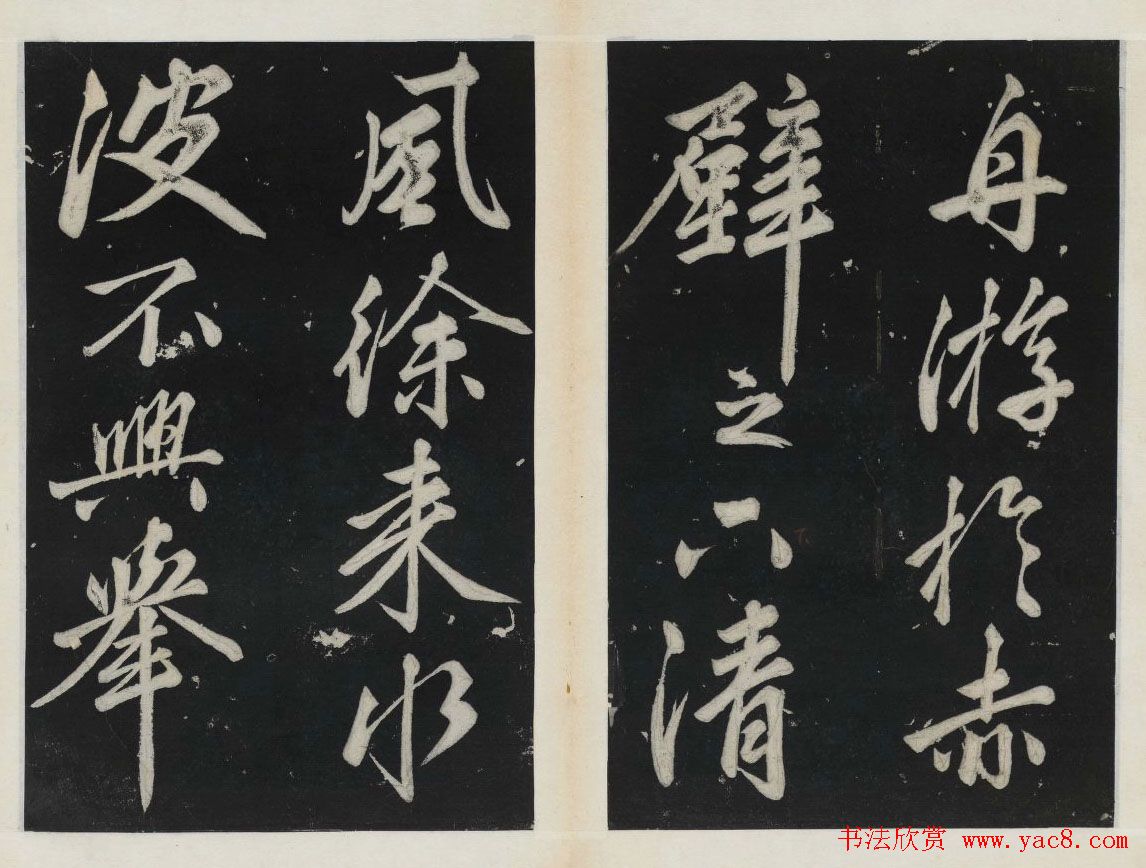 舟游於赤
壁之下清
風徐来水
波不興舉
书法欣赏 www.yac8.com